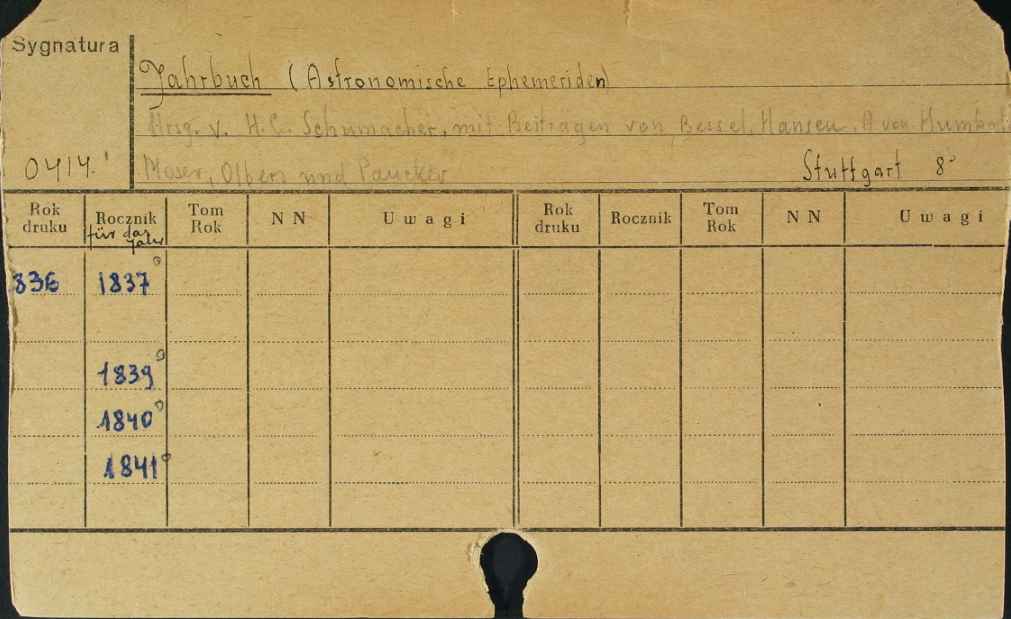 Sygnatura
Jahrbuch (Astronomische Ephemeriden)
Hrsg. v. H.C. Schumacher, mit Beiträgen von Bessel, Hansen, A von Humbol
0414.
Moser, Olbers und Paucker
Stuttgart 8°
Rok druku Rocznik Tom Rok NN Uwagi Rok druku Rocznik Tom Rok NN Uwagi
für das Jahr
836 1837°
1839°
1840°
1841°